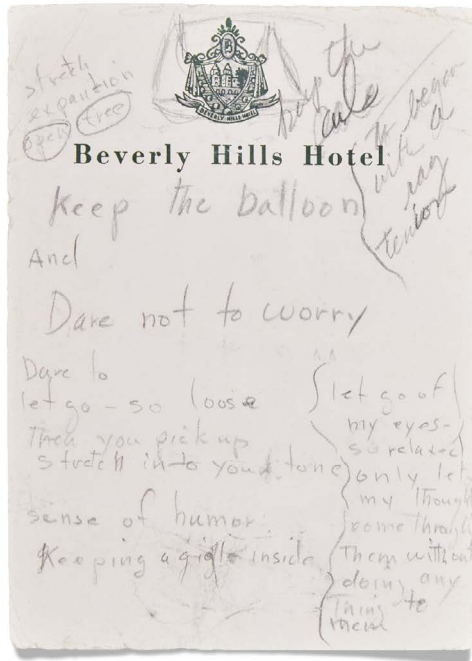 stretch
expantion
open free
BEVERLY HILLS HOTEL
Beverly Hills Hotel
the
to began
with a
rag
Keep the balloon
And
Dare not to worry
Dare to
let go - so loose
Then you pick up
stretch into your tone
sense of humor
Keeping a gigle inside
let go of
my eyes -
so relaxed
only let
my though
come through
them without
doing any
thing to
them